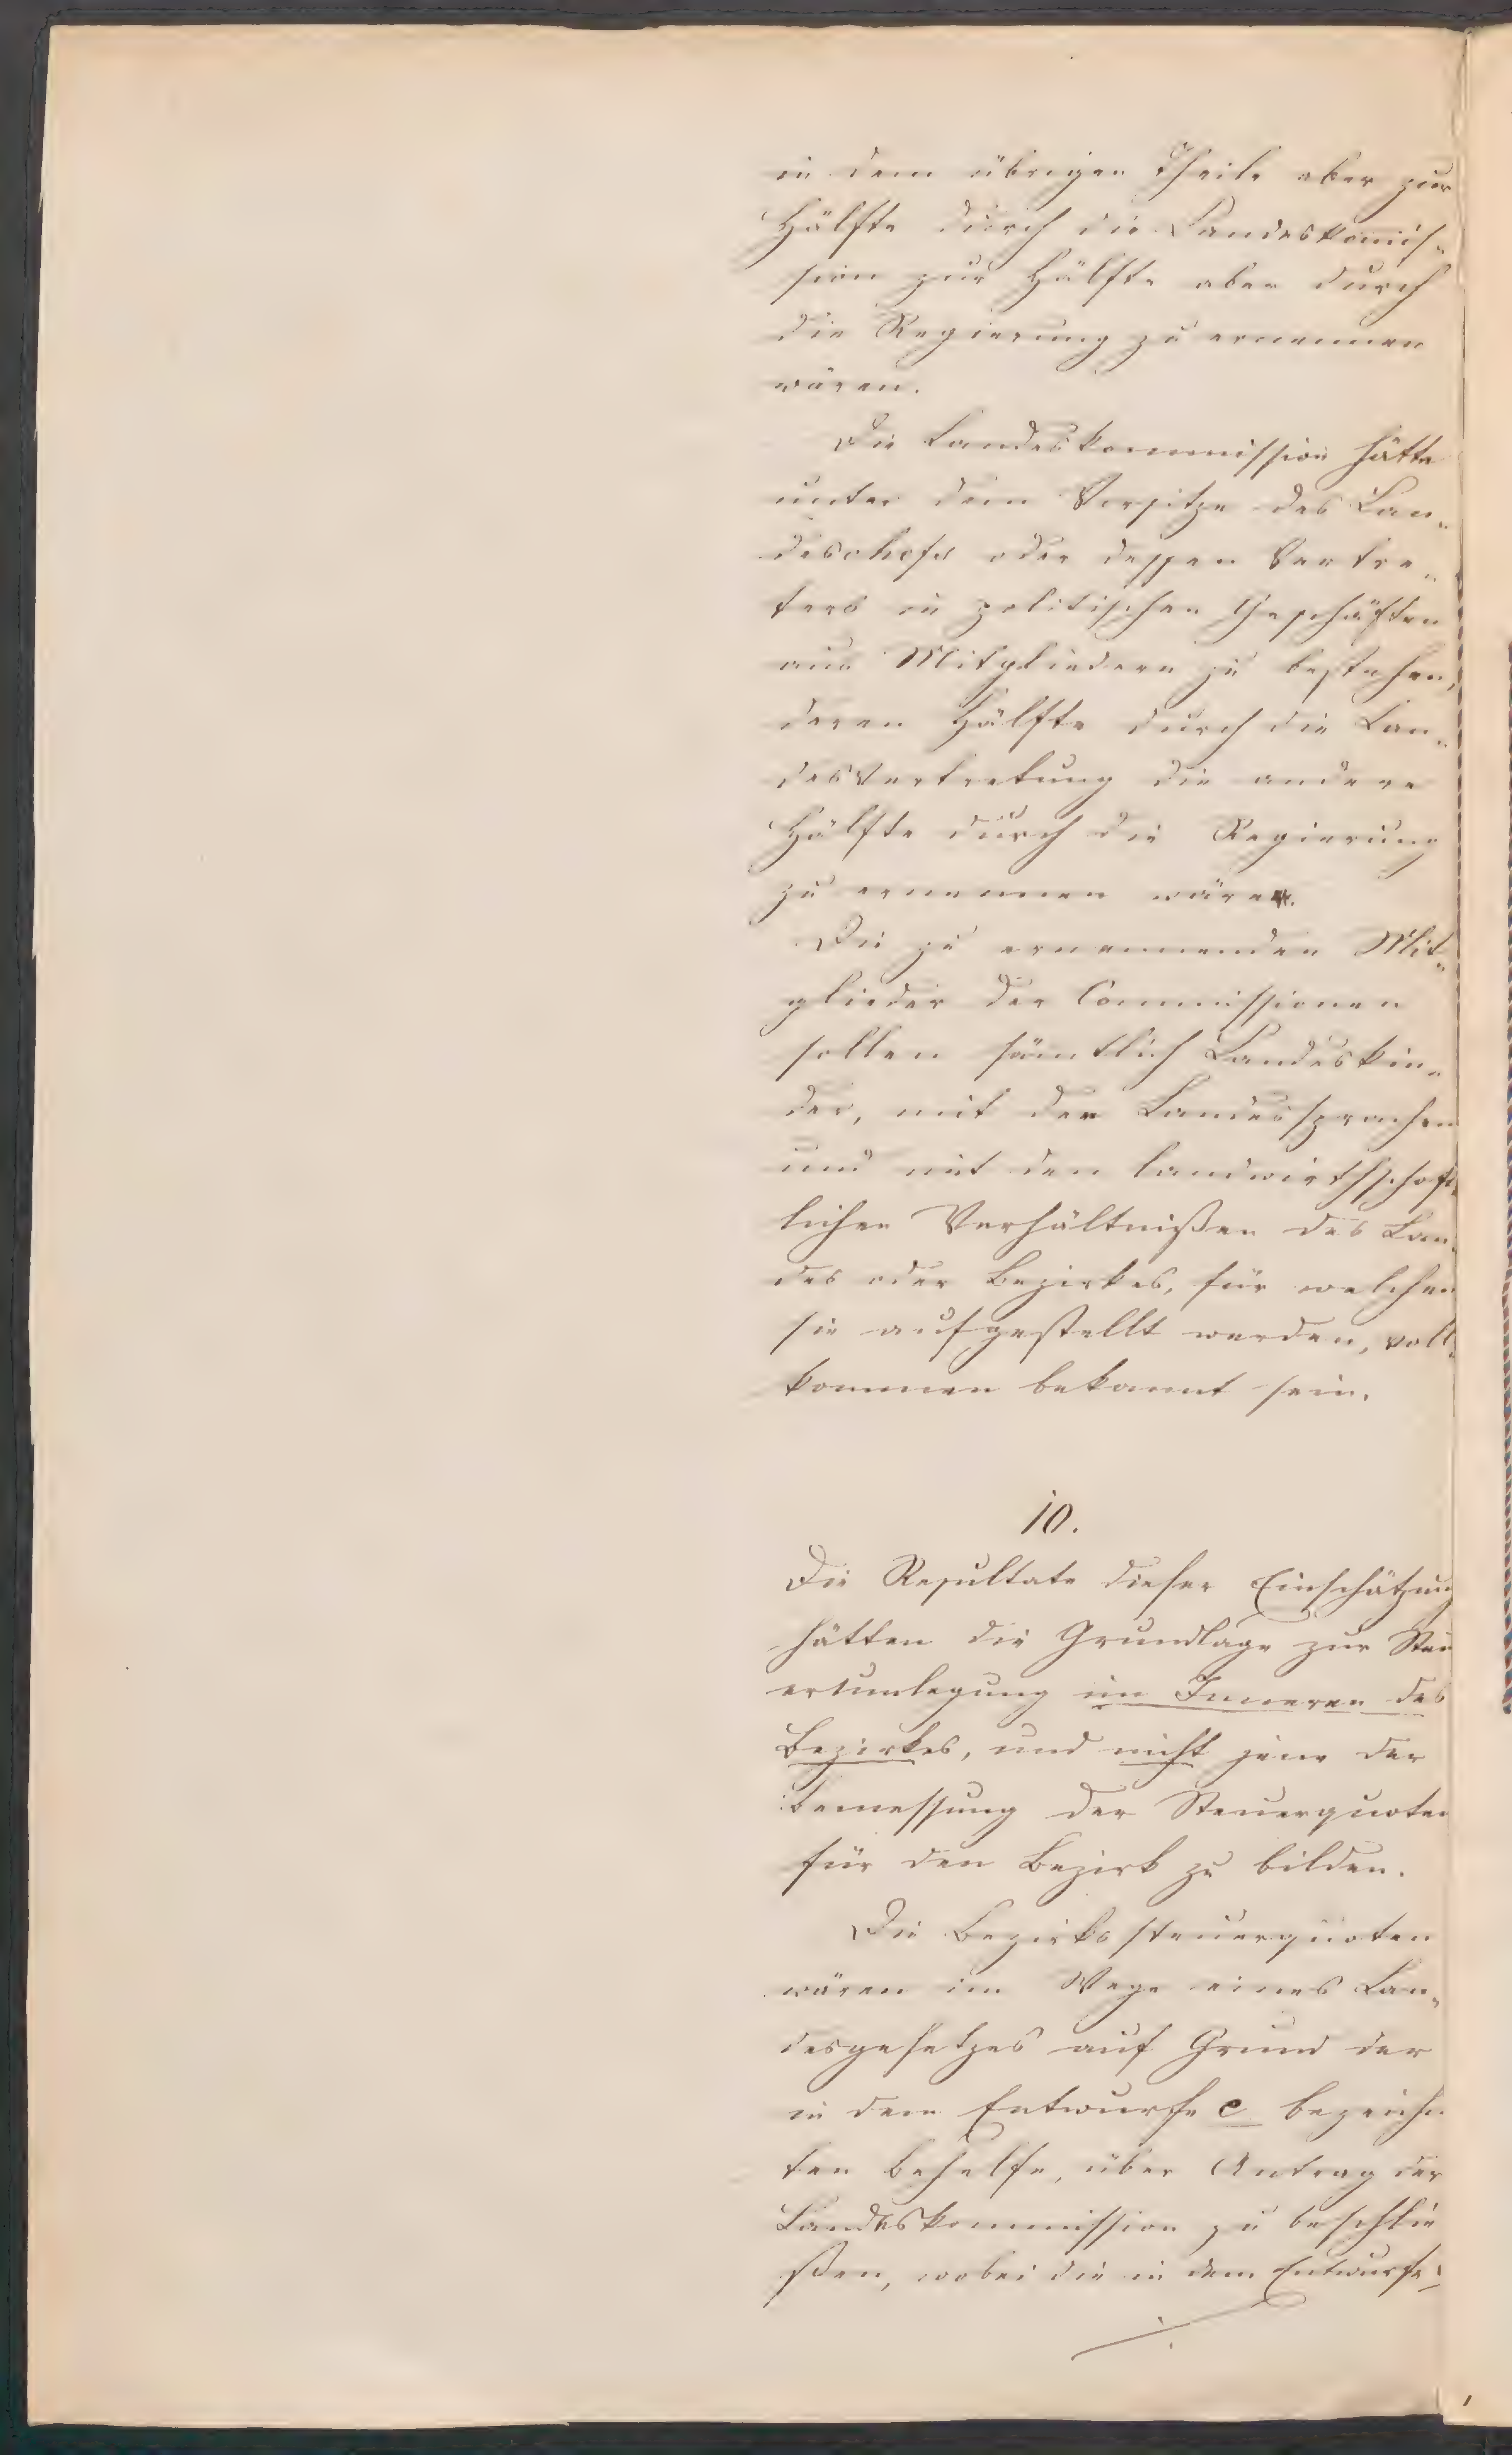 in dem übrigen Theile aber zur
Hälfte durch die Landeskomis-
sion zur Hälfte aber durch
die Regierung zu ernennen
wären.
Die Landeskommission hätte
unter dem Vorsitze des Lan-
deschefs oder dessen Vertre-
ters in politischen Geschäften
aus Mitgliedern zu bestehen,
deren Hälfte durch die Lan-
desvertretung die andere
Hälfte durch die Regierung
zu ernennen wäre.
Die zu ernennenden Mit-
glieder der Commissionen
sollen sämtlich Landeskin-
der, mit den Landessprachen
und mit den landwirthschaft-
lichen Verhältnißen des Lan-
des oder Bezirkes, für welchen
sie aufgestellt werden, voll-
kommen bekannt sein.
10.
Die Resultate dieser Einschätzung
hätten die Grundlage zur Steu
erumlegung im Inneren des
Bezirkes, und nicht jene der
Bemessung der Steuerquoten
für den Bezirk zu bilden.
Die Bezirkssteuerquoten
wären im Wege eines Lan-
desgesetzes auf Grund der
in dem Entwurfe e bezeichn
ten Behelfe, über Antrag der
Landeskommission zu beschlie
ßen, wobei die in dem Entwurfe
./.